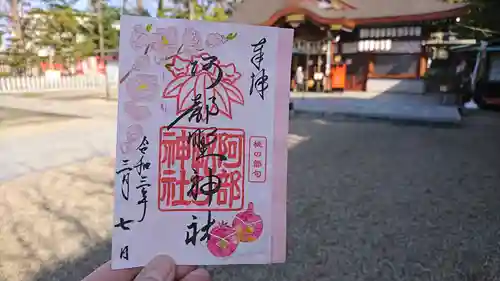 奉拝
阿部野神社
阿部野神社
桃の節句
令和三年
三月七日